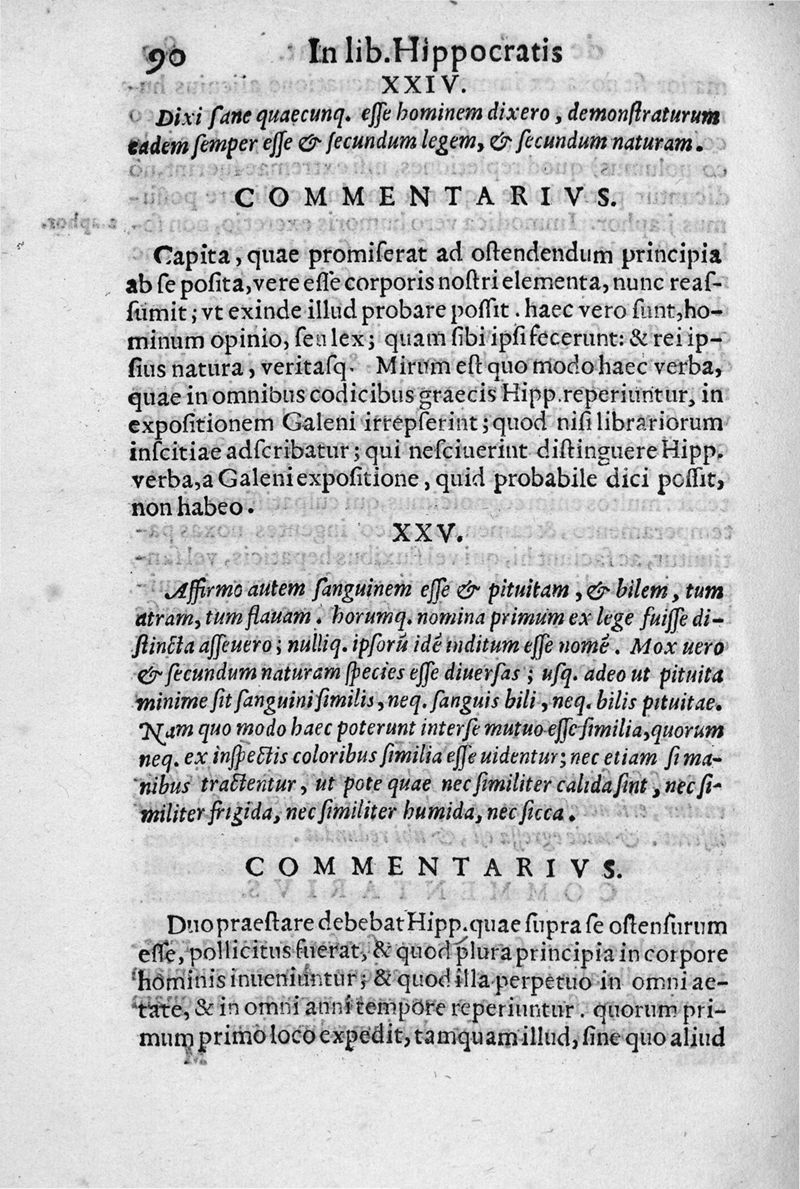 90 In lib.Hippocratis
XXIV.
Dixi ſane quaecunq. eſſe hominem dixero, demonſtraturum
eadem ſemper eſſe & ſecundum legem, & ſecundum naturam.
COMMENTARIVS.
Capita, quae promiſerat ad oſtendendum principia
ab ſe poſita, vere eſſe corporis noſtri elementa, nunc reaſ-
ſumit; vt exinde illud probare poſſit. haec vero ſunt, ho-
minum opinio, ſeu lex; quam ſibi ipſi fecerunt: & rei ip-
ſius natura, veritaſq. Mirum eſt quo modo haec verba,
quae in omnibus codicibus graecis Hipp. reperiuntur, in
expoſitionem Galeni irrepſerint; quod niſi librariorum
inſcitiae adſcribatur; qui neſciuerint diſtinguere Hipp.
verba, a Galeni expoſitione, quid probabile dici poſſit,
non habeo.
XXV.
Affirmo autem ſanguinem eſſe & pituitam, & bilem, tum
atram, tum flauam. horumq. nomina primum ex lege fuiſſe di-
ſtincta aſſeuero; nulliq. ipſorū idē inditum eſſe nomē. Mox uero
& ſecundum naturam ſpecies eſſe diuerſas; uſq. adeo ut pituita
minime ſit ſanguini ſimilis, neq. ſanguis bili, neq. bilis pituitae.
Nam quo modo haec poterunt inter ſe mutuo eſſe ſimilia, quorum
neq. ex inſpectis coloribus ſimilia eſſe uidentur; nec etiam ſi ma-
nibus tractentur, ut pote quae nec ſimiliter calida ſint, nec ſi-
militer frigida, nec ſimiliter humida, nec ſicca.
COMMENTARIVS.
Duo praeſtare debebat Hipp. quae ſupra ſe oſtenſurum
eſſe, pollicitus fuerat, & quod plura principia in corpore
hominis inueniuntur; & quod illa perpetuo in omni ae-
tate, & in omni anni tempore reperiuntur. quorum pri-
mum primo loco expedit, tamquam illud, ſine quo aliud